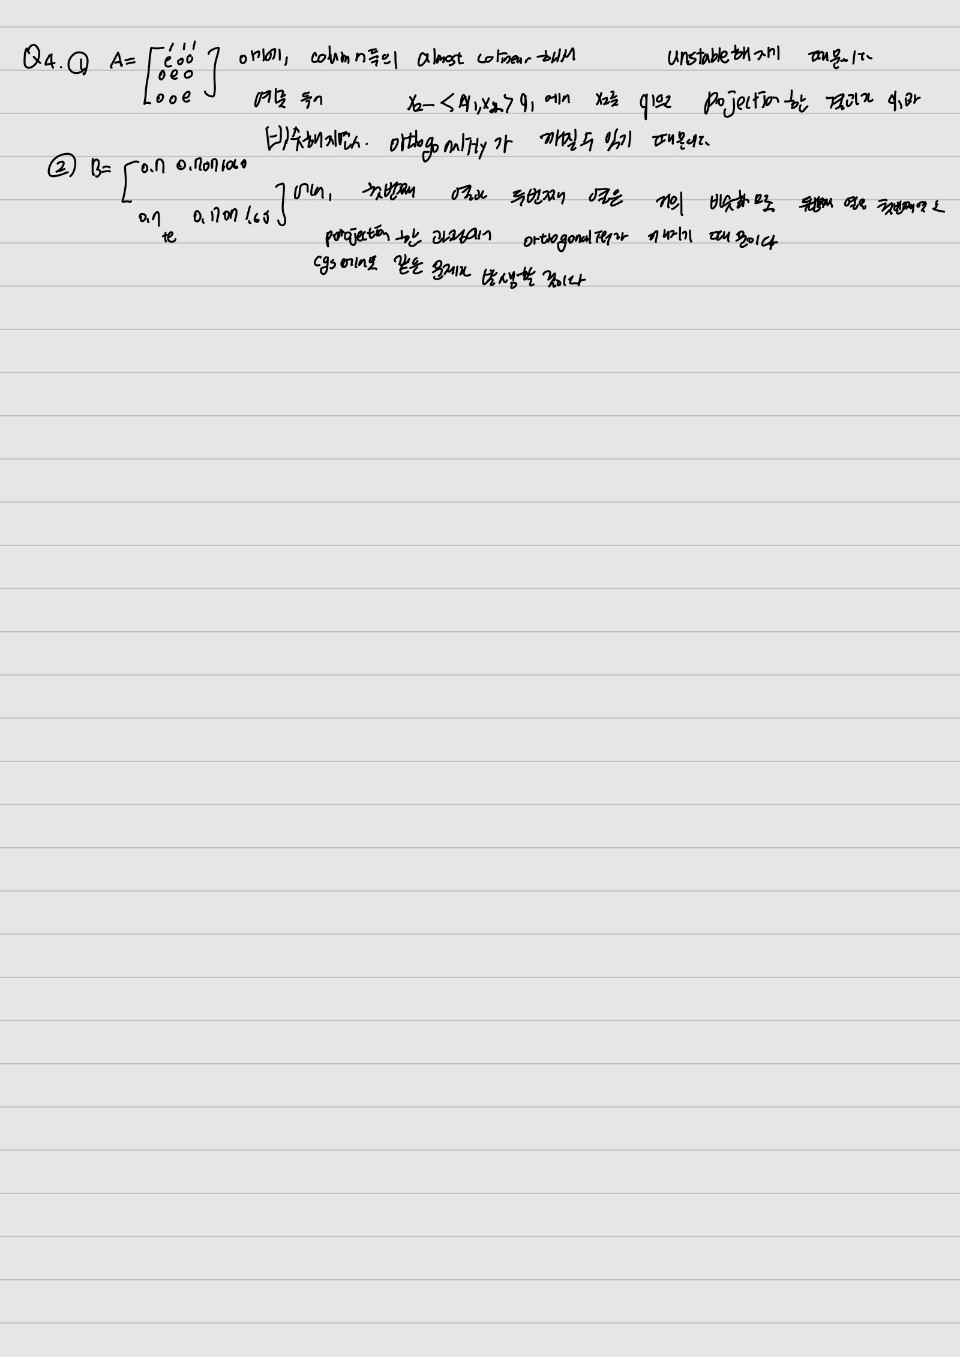 Q4. ① A= [ 1 1 1 이며, column 쪽의 almost colinear 해서 unstable해지기 때문이다.
e 0 0
0 e 0
0 0 e ] 예를 들어 x2 - <q1, x2> q1 에서 x2를 q1으로 projection 한 결과가 q1과
비슷해지면서. orthogonality가 깨질 수 있기 때문이다.
② B= [ 0.7 0.70711
0.7 0.70711 ] 이며, 첫번째 열과 두번째 열은 거의 비슷하므로 두번째 열을 첫번째
+e projection 한 과정에서 orthogonal 깨지기 때문이다
cgs 에서도 같은 문제가 발생할 것이다